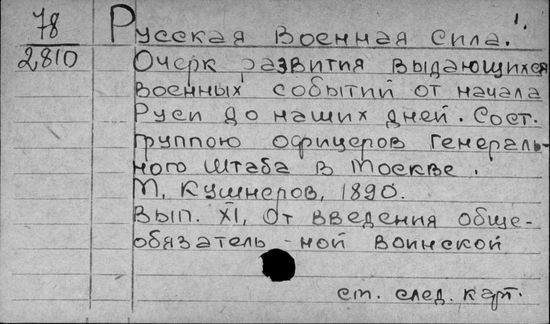 78
2810
1.
Русская военная сила.
Очерк развития выдающихся
военных событий от начала
Руси до наших дней. Сост.
группою офицеров генераль-
ного штаба в Москве.
М, Кушнеров, 1890.
Вып. XI, От введения обще-
обязатель-ной воинской
см. след. карт.